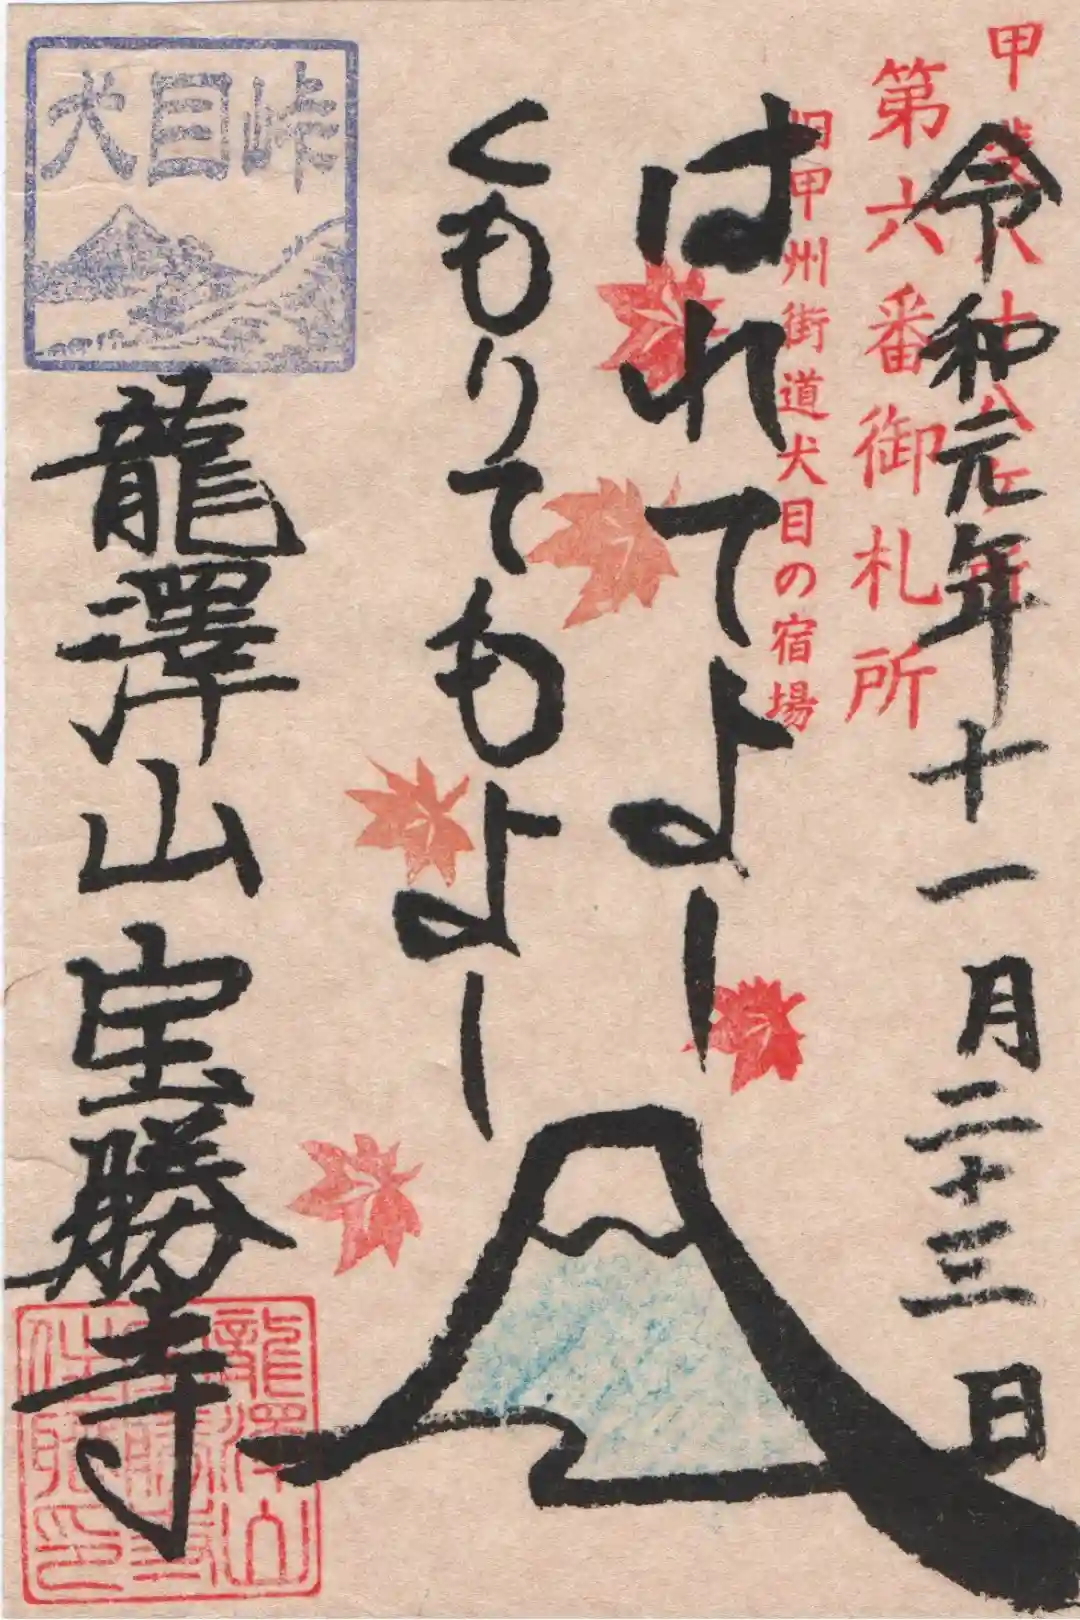 甲斐八十八ヶ所
第六番御札所
旧甲州街道犬目の宿場
令和元年十一月二十三日
はれてよし
くもりてもよし
犬目峠
龍澤山宝勝寺
龍澤山